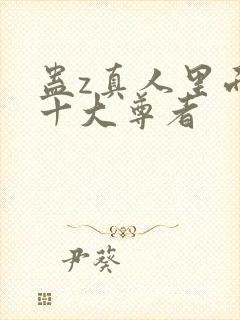 蛊z真人里面
十大尊者
尹葵